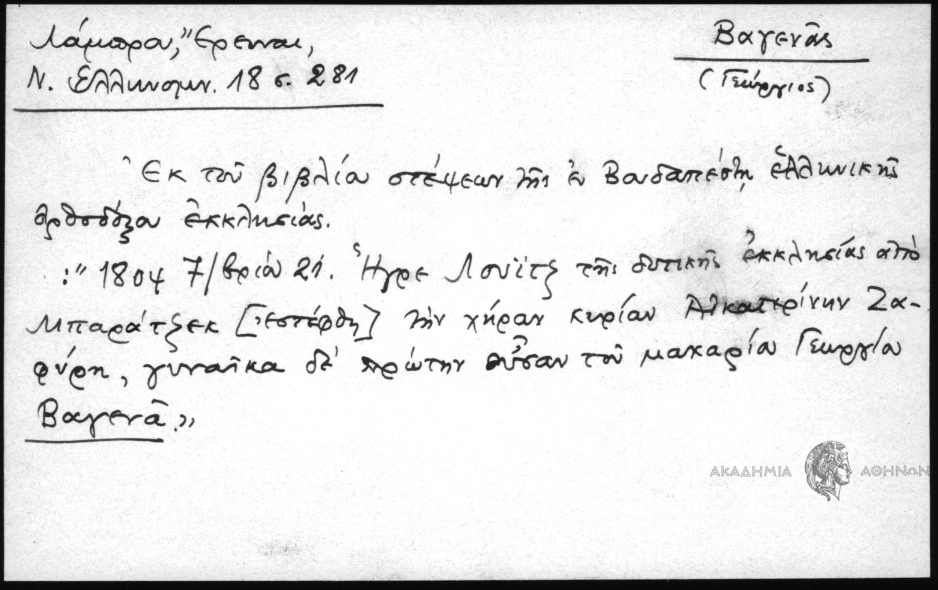 Λάμπρου, "Έρευναι,
Ν. Ἑλληνομν. 18 σ. 281
Βαγενᾶς
(Γεώργιος)
Ἐκ τοῦ βιβλίου στέψεων τῆς ἐν Βουδαπέστῃ ἑλληνικῆς
ὀρθοδόξου ἐκκλησίας.
:" 1804 7/βρίου 21. Ἥγρε Λουΐτζ τῆς δυτικῆς ἐκκλησίας ἀπὸ
Μπαράτζεκ [ἐστέφθη] τὴν χήραν κυρίαν Αἰκατερίνην Ζα-
φύρη, γυναῖκα δὲ πρώτην οὖσαν τοῦ μακαρίου Γεωργίου
Βαγενᾶ."
ΑΚΑΔΗΜΙΑ ΑΘΗΝΩΝ